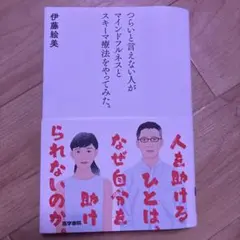 つらいと言えない人が
マインドフルネスと
スキーマ療法をやってみた。
伊藤絵美
人を助ける
ひとは、
なぜ自分を
助け
られないのか。
医学書院